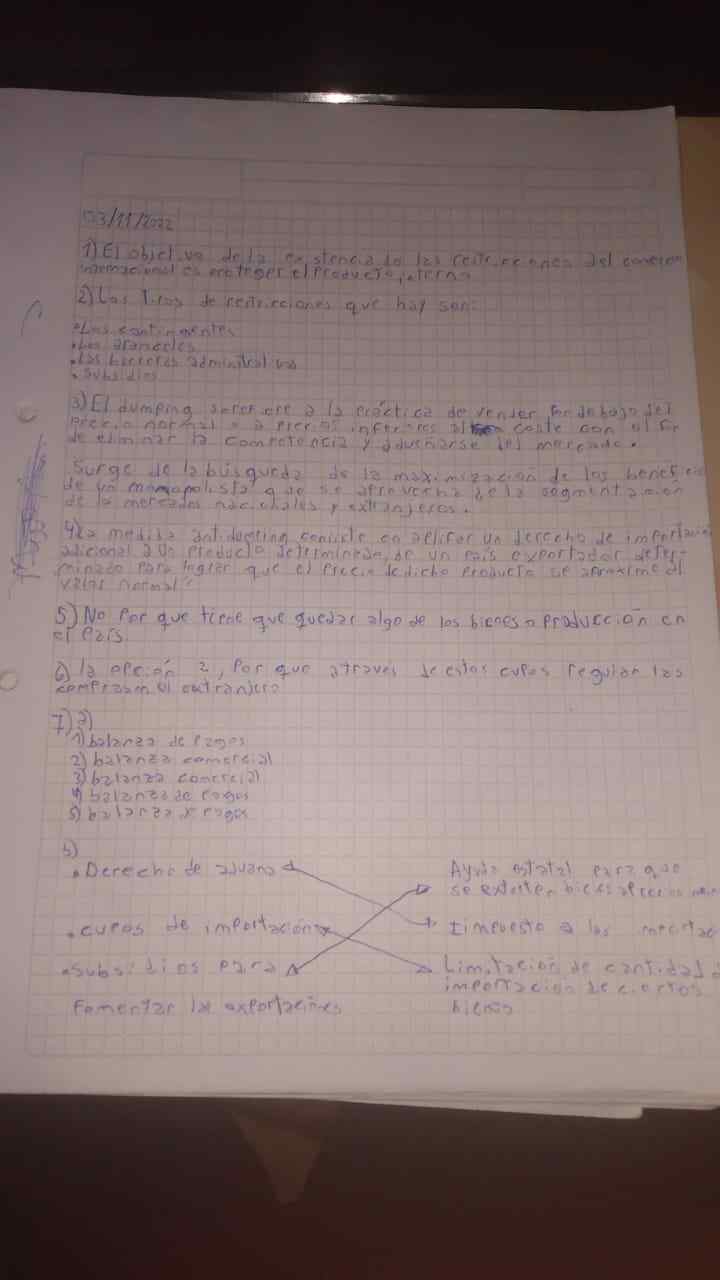 03/11/2022
1) El objetivo de la existencia de las restricciones del comercio
internacional es proteger el producto interno
2) Los Tipos de restricciones que hay son:
•Los contingentes
•Los aranceles
•las barreras administrativa
•Subsidios
3) El dumping se refiere a la práctica de vender por debajo del
precio normal o a precios inferiores al coste con el fin
de eliminar la competencia y adueñarse del mercado.
Surge de la búsqueda de la maximización de los benefici
de un monopolista que se aprovecha de la segmentacion
de la mercados nacionales y extranjeros.
4) La medida antidumping consiste en aplicar un derecho de importación
adicional a un producto determinado, de un país exportador deter-
minado para lograr que el precio de dicho producto se aproxime al
valor normal
5) No Por que tiene que quedar algo de los bienes o producción en
el País.
6) la opción 2, Por que atraves de estos cupos regulan las
compras en el extranjero
7) a)
1) balanza de pagos
2) balanza comercial
3) balanza comercial
4) balanza de pagos
5) balanza de pagos
b)
•Derecho de aduana Ayuda estatal para que
se exporten bienes a precios
•cupos de importación Impuesto a las
•Subsidios para Limitación de cantidad
Fomentar la exportaciones importacion de ciertos
bienes